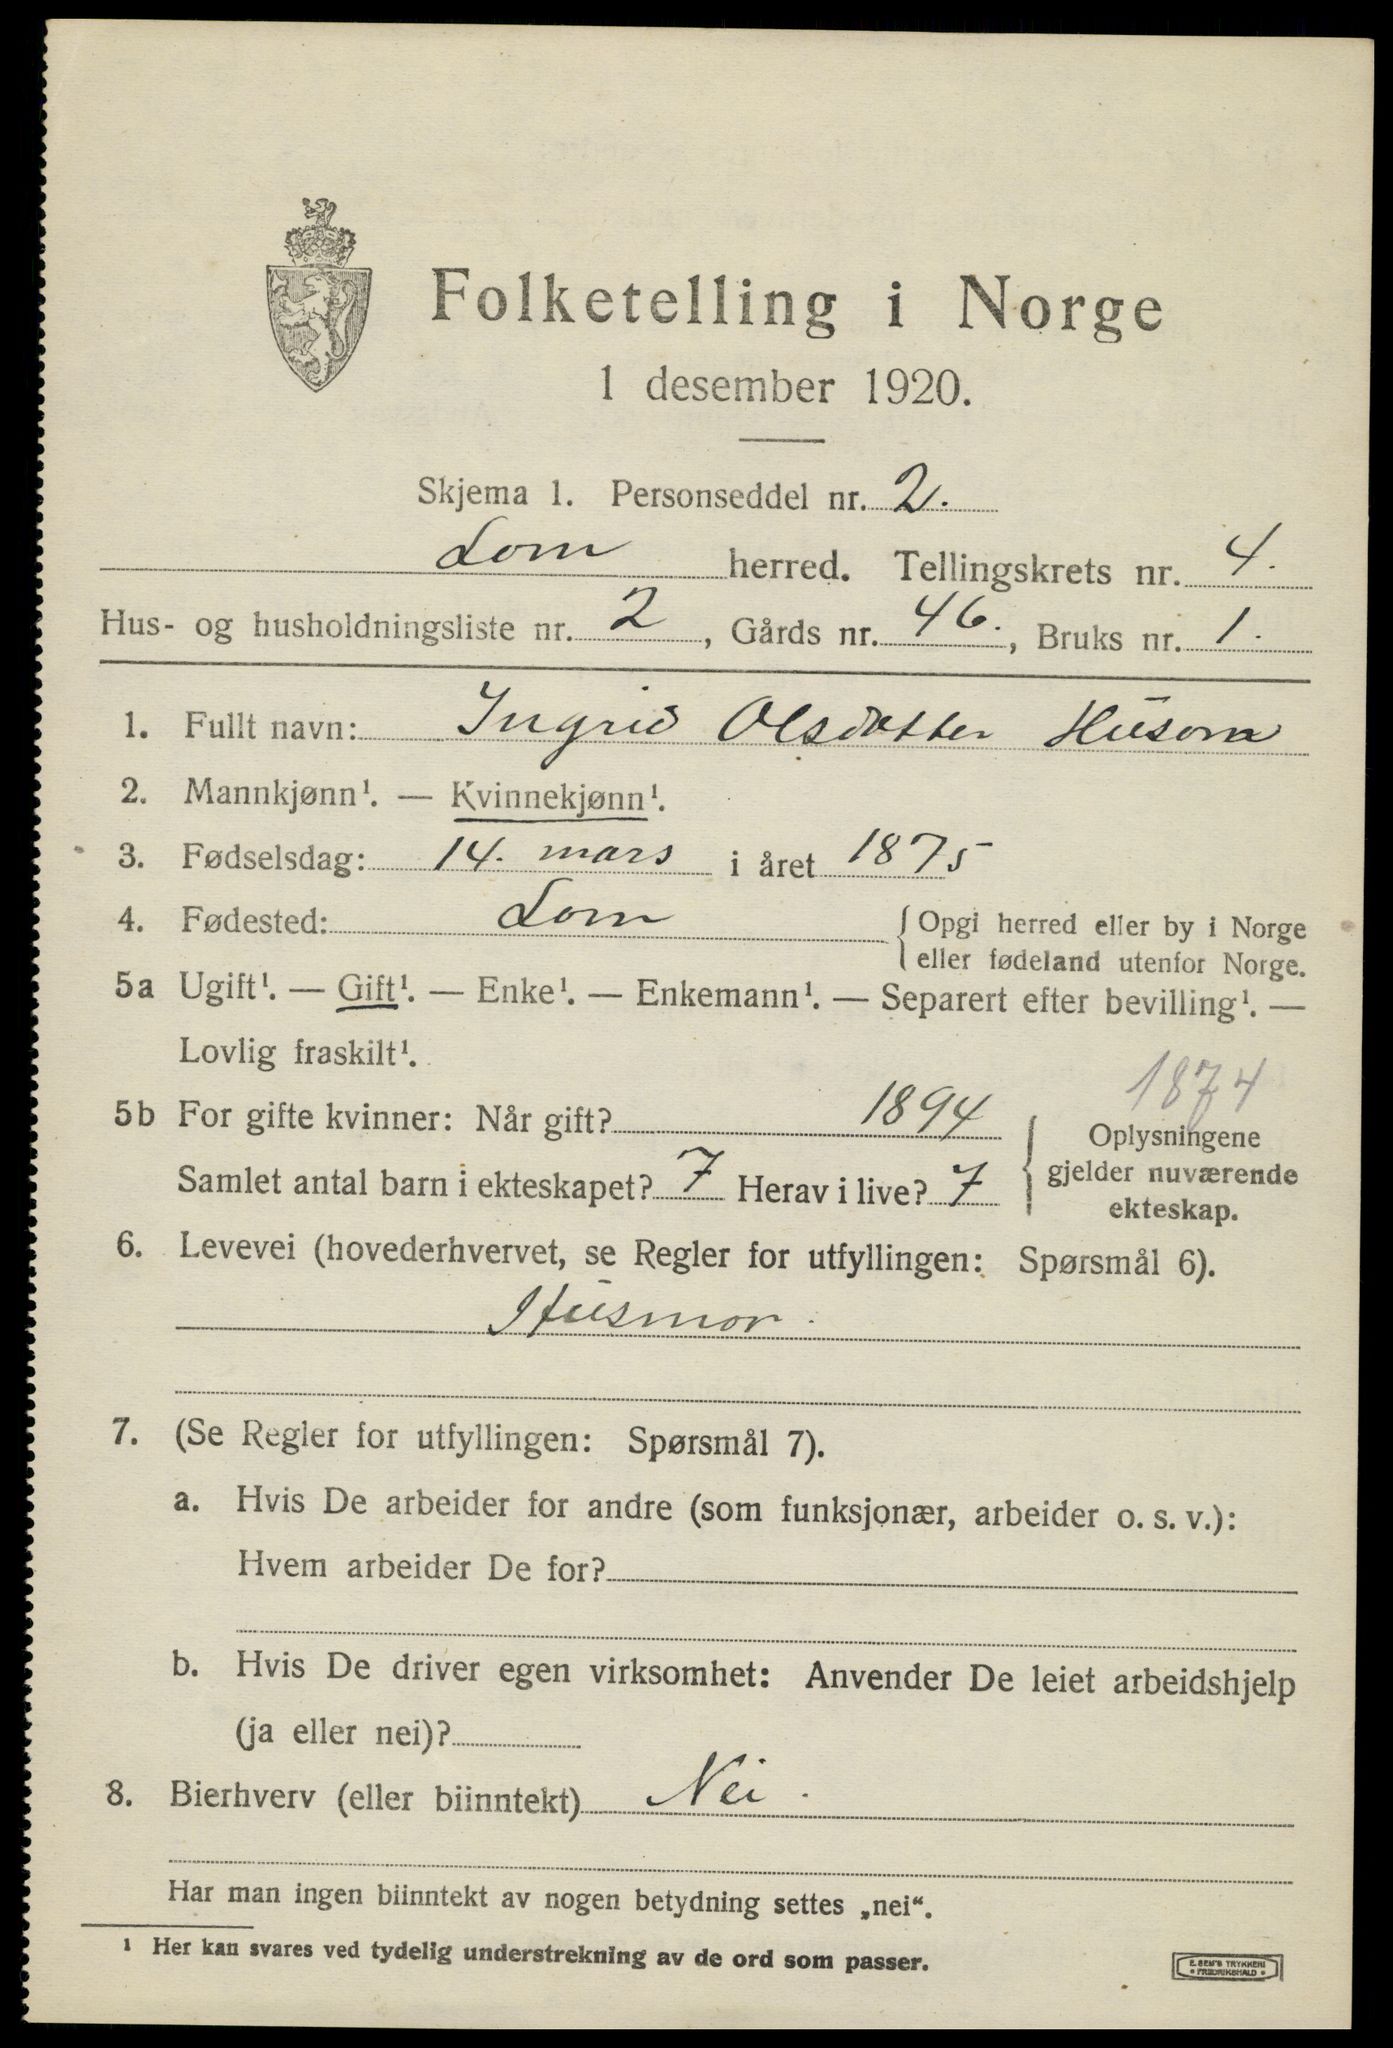 Folketelling i Norge
1 desember 1920.
Skjema 1. Personseddel nr. 2.
Lom herred. Tellingskrets nr. 4.
Hus- og husholdningsliste nr. 2, Gårds nr. 46., Bruks nr. 1.
1. Fullt navn: Ingrid Olsdatter Husom
2. Mannkjønn¹. — Kvinnekjønn¹.
3. Fødselsdag: 14. mars i året 1875
4. Fødested: Lom { Opgi herred eller by i Norge
eller fødeland utenfor Norge.
5a Ugift¹. — Gift¹. — Enke¹. — Enkemann¹. — Separert efter bevilling¹. —
Lovlig fraskilt¹.
1874
5b For gifte kvinner: Når gift? 1894 { Oplysningene
Samlet antal barn i ekteskapet? 7 Herav i live? 7 gjelder nuværende
ekteskap.
6. Levevei (hovederhvervet, se Regler for utfyllingen: Spørsmål 6).
Husmor.
7. (Se Regler for utfyllingen: Spørsmål 7).
a. Hvis De arbeider for andre (som funksjonær, arbeider o. s. v.):
Hvem arbeider De for?
b. Hvis De driver egen virksomhet: Anvender De leiet arbeidshjelp
(ja eller nei)?
8. Bierhverv (eller biinntekt) Nei.
Har man ingen biinntekt av nogen betydning settes „nei“.
¹ Her kan svares ved tydelig understrekning av de ord som passer.
E. SEM'S TRYKKERI
• FREDRIKSHALD •